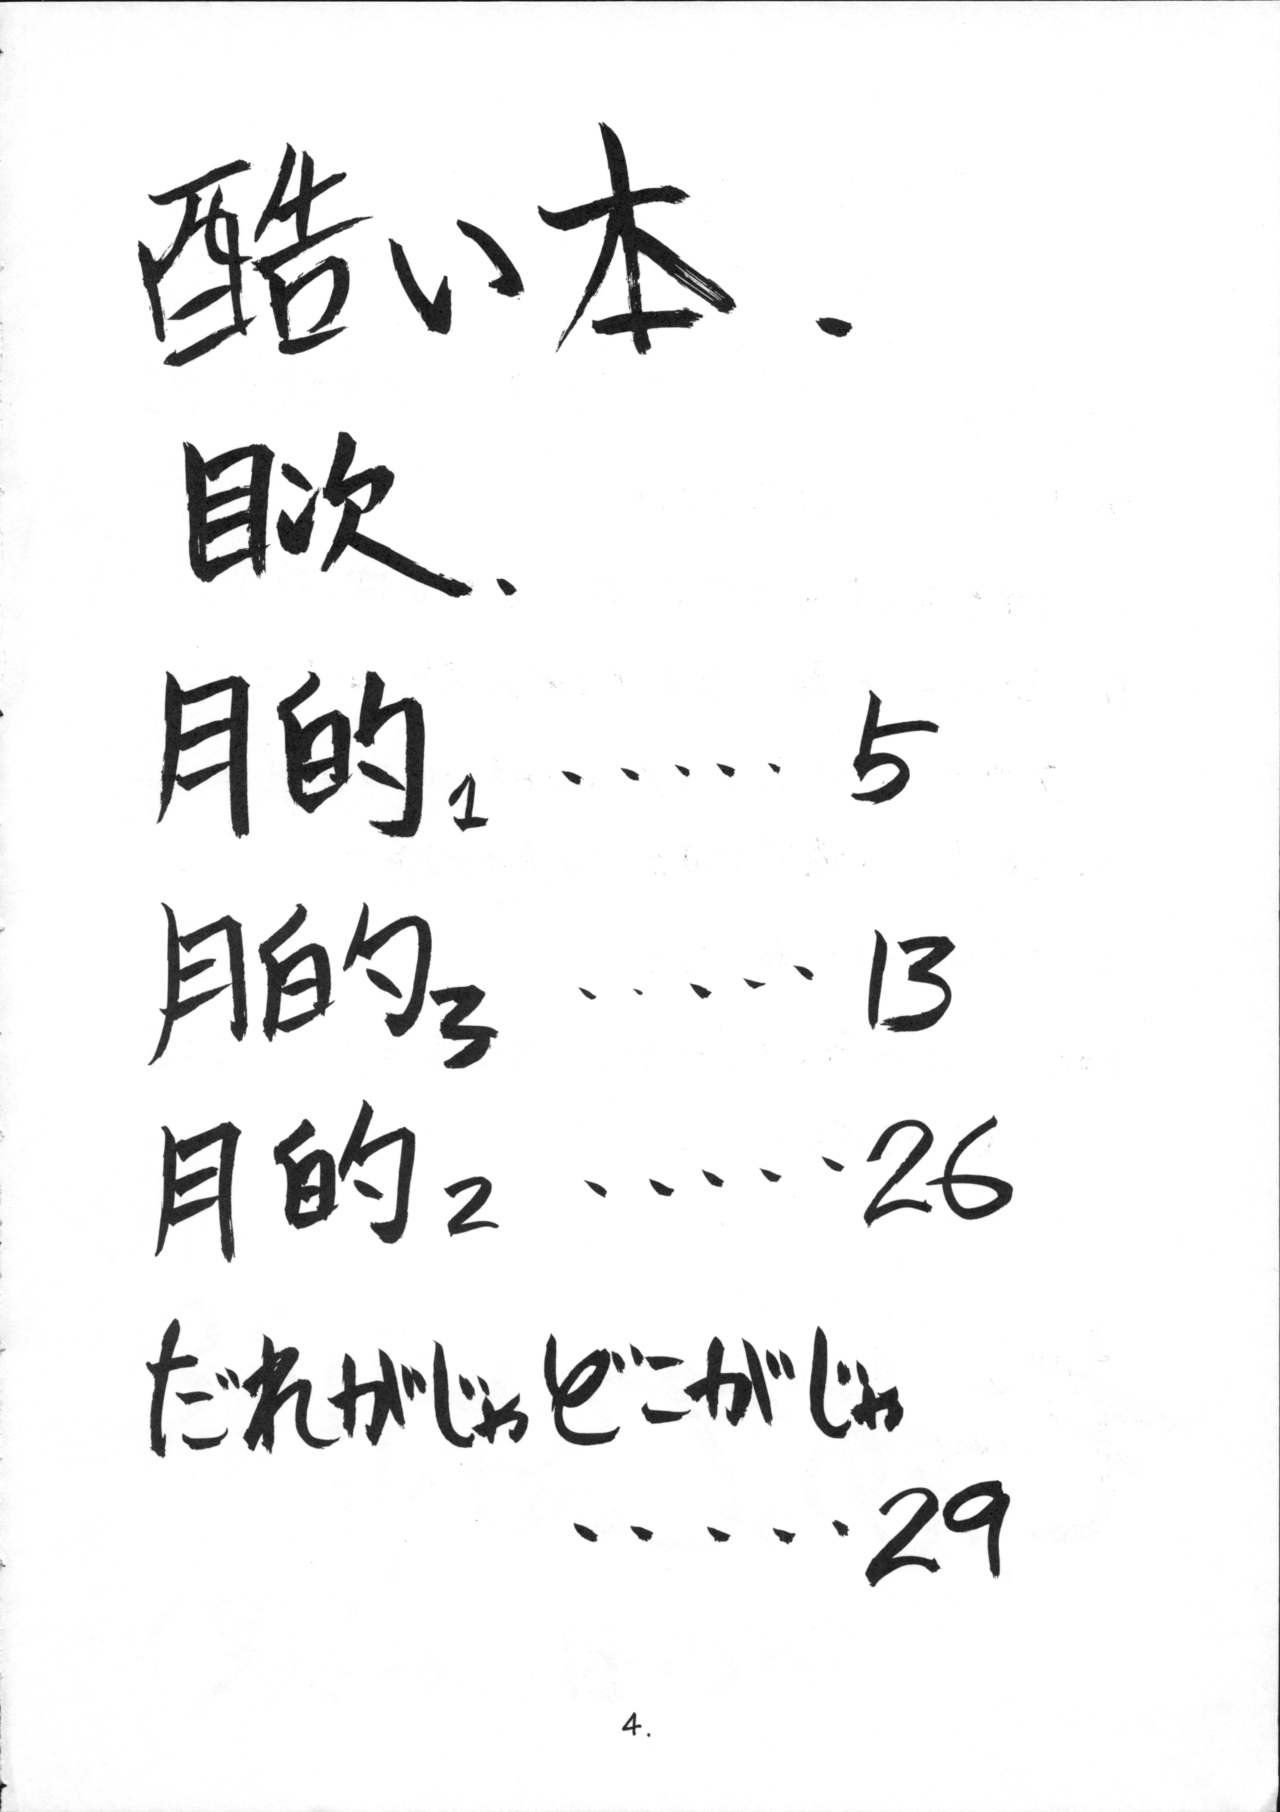 酷い本.
目次.
月的1 ..... 5
月的3 ..... 13
月的2 ..... 26
だれがじゃどこがじゃ
..... 29
4.